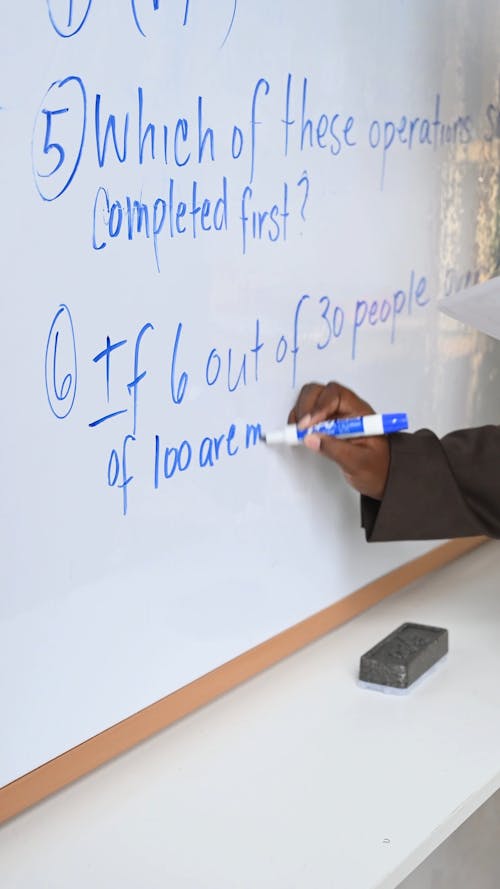 5 Which of these operations
completed first?
6 If 6 out of 30 people
of 100 are m